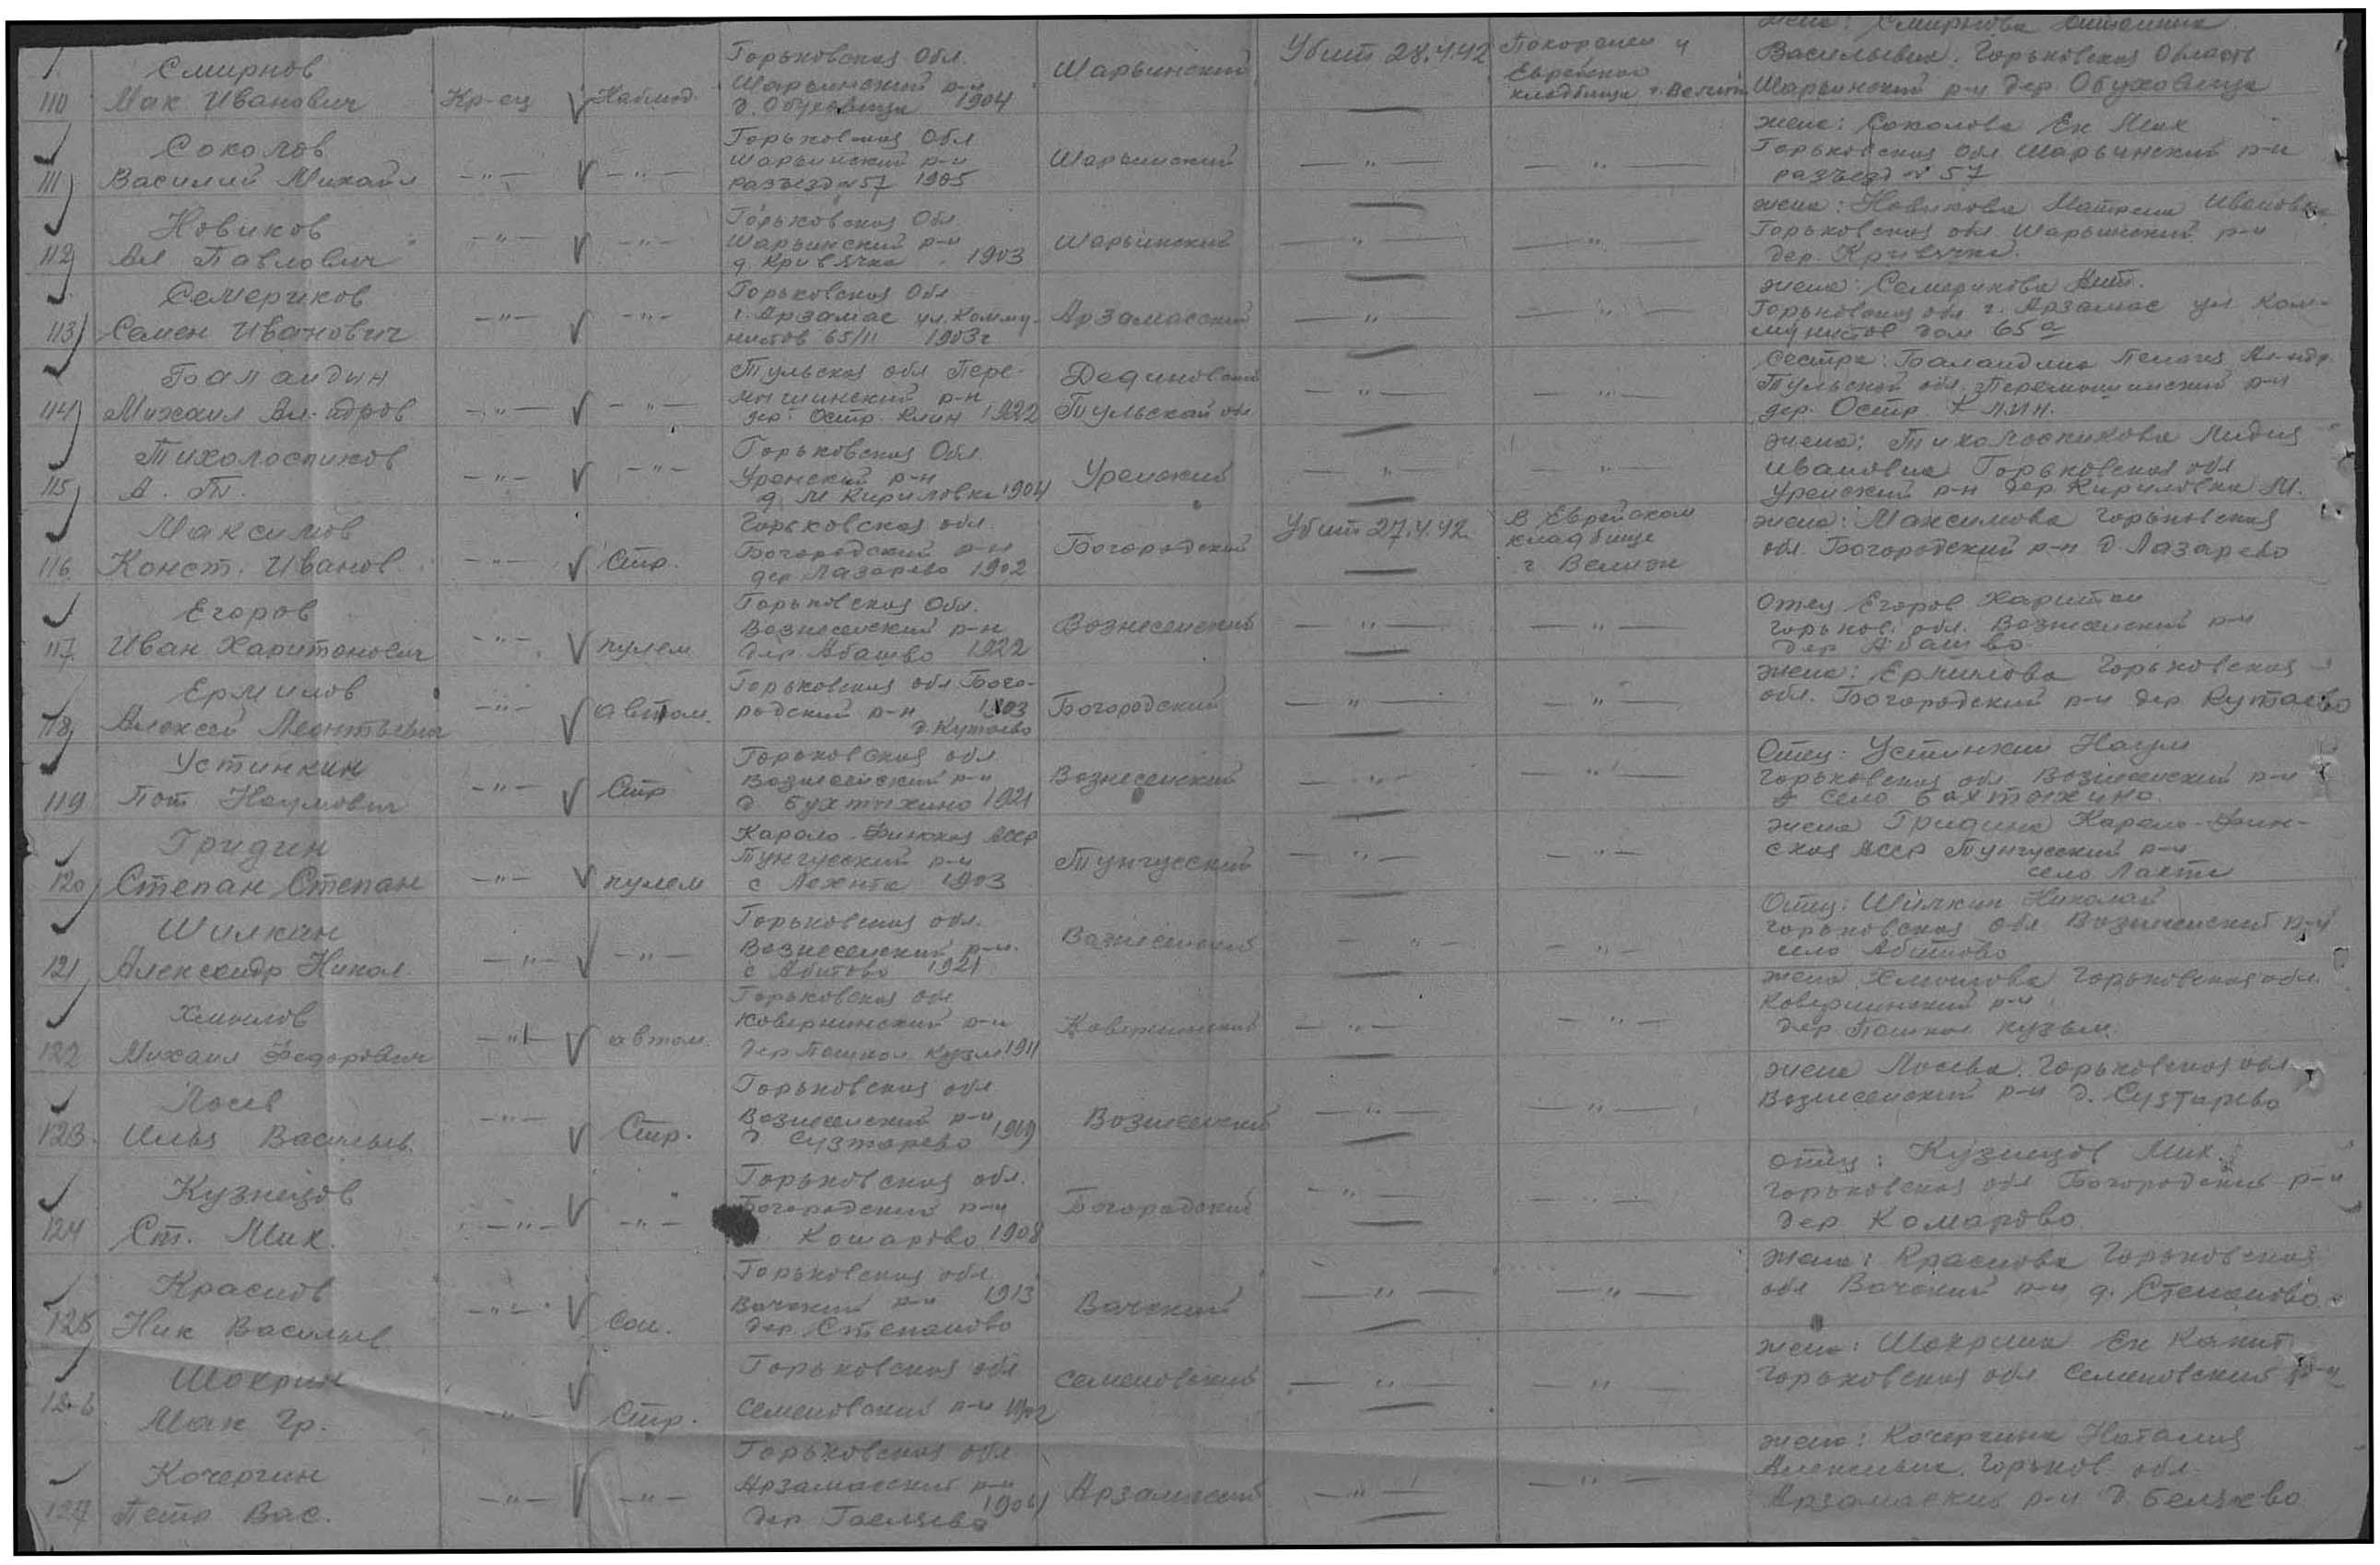 110 Смирнов
Мак Иванович
Кр-ец
Наблюд.
Горьковская Обл.
Шарьинский р-н
д. Обуховица 1904
Шарьинский
Убит 28.4.42
Похоронен
Еврейское
кладбище г. Велиж
жена: Смирнова
Васильевна. Горьковская Область
Шарьинский р-н дер. Обуховица
111) Соколов
Василий Михайл
-"-
-"-
Горьковская Обл
Шарьинский р-н
разъезд №57 1905
Шарьинский
-"-
-"-
жена: Соколова Ек Мих
Горьковская Обл Шарьинский р-н
разъезд № 57
112) Новиков
Вл Павлович
-"-
-"-
Горьковская Обл
Шарьинский р-н
д. Кривячка 1903
Шарьинский
-"-
-"-
жена: Новикова Матрена Ивановна
Горьковская обл. Шарьинский р-н
дер. Кривячка.
113) Семериков
Семен Иванович
-"-
-"-
Горьковская Обл
г. Арзамас ул. Комму-
нистов 65/11 1903г
Арзамасский
-"-
-"-
жена: Семерикова
Горьковская обл г. Арзамас ул Ком-
мунистов дом 65а
114) Баландин
Михаил Ал-адров
-"-
-"-
Тульская обл Пере-
мышинский р-н
дер. Остр. Клин 1922
Дединовский
Тульской обл
-"-
-"-
сестра: Баландина Пелагея Ал-ндр
Тульской обл. Перемышинский р-н
дер. Остр. Клин.
115) Тихолоспиков
А. П.
-"-
-"-
Горьковская Обл.
Уренский р-н
д. М Кириловка 1904
Уренский
-"-
-"-
жена: Тихолоспикова Лидия
Ивановна Горьковская обл
Уренский р-н дер Кириловка М.
116 Максимов
Конст. Иванов
-"-
Стр.
Горьковская обл.
Богородский р-н
дер Лазарево 1902
Богородский
Убит 27.4.42
В Еврейском
кладбище
г Велиж
жена: Максимова Горьковская
обл. Богородский р-н д Лазарево
117 Егоров
Иван Харитонович
-"-
пулем
Горьковская Обл.
Вознесенский р-н
дер Абашево 1922
Вознесенский
-"-
-"-
Отец Егоров Харитон
Горьков. обл. Вознесенский р-н
дер Абашево
118) Ермилов
Алексей Леонтьевич
-"-
автом.
Горьковская обл Бого-
родский р-н 1903
д. Кутаево
Богородский
-"-
-"-
жена: Ермилова Горьковская
обл. Богородский р-н дер Кутаево
119 Устинкин
Пот Наумович
-"-
Стр
Горьковская обл
Вознесенский р-н
д Бухтыхино 1921
Вознесенский
-"-
-"-
Отец: Устинкин Наум
Горьковская обл Вознесенский р-н
село Бахтыхино.
120) Гридин
Степан Степан
-"-
пулем
Карело-Финская АССР
Тунгусский р-н
с Лехнта 1903
Тунгусский
-"-
-"-
жена Гридина Карело-Фин-
ская АССР Тунгусский р-н
село Лахти
121 Шилкин
Александр Никол.
-"-
-"-
Горьковская обл.
Вознесенский р-н.
с Абитово 1921
Вознесенский
-"-
-"-
Отец: Шилкин Николай
Горьковская обл Вознесенский р-н
село Абитово
122 Хмылов
Михаил Федорович
-"-
автом.
Горьковская обл
Ковернинский р-н
дер Кузм 1911
Ковернинский
-"-
-"-
жена Хмылова Горьковская обл.
Ковернинский р-н
дер
123. Лосев
Илья Васильев.
-"-
Стр.
Горьковская обл
Вознесенский р-н
д Сузтарево 1909
Вознесенский
-"-
-"-
жена Лосева. Горьковская обл
Вознесенский р-н д. Сузтарево
124 Кузнецов
Ст. Мих.
-"-
-"-
Горьковская обл.
Богородский р-н
Комарово 1908
Богородский
-"-
-"-
отец: Кузнецов Мих.
Горьковская обл Богородский р-н
дер Комарово
125 Краснов
Ник Васильев
-"-
Сап.
Горьковская обл
Вачский р-н 1913
дер Степаново
Вачский
-"-
-"-
жена: Краснова Горьковская
обл Вачский р-н д. Степаново
126 Шокрин
Мак Гр.
-"-
Стр.
Горьковская обл
Семеновский р-н 1902
Семеновский
-"-
-"-
жена: Шокрина Ек Капит
Горьковская обл Семеновский р-н
127 Кочергин
Петр Вас.
-"-
-"-
Горьковская обл
Арзамасский р-н
дер 1904
Арзамасский
-"-
-"-
жена: Кочергина Наталия
Алексеевна. Горьков. обл.
Арзамаский р-н д Беляево